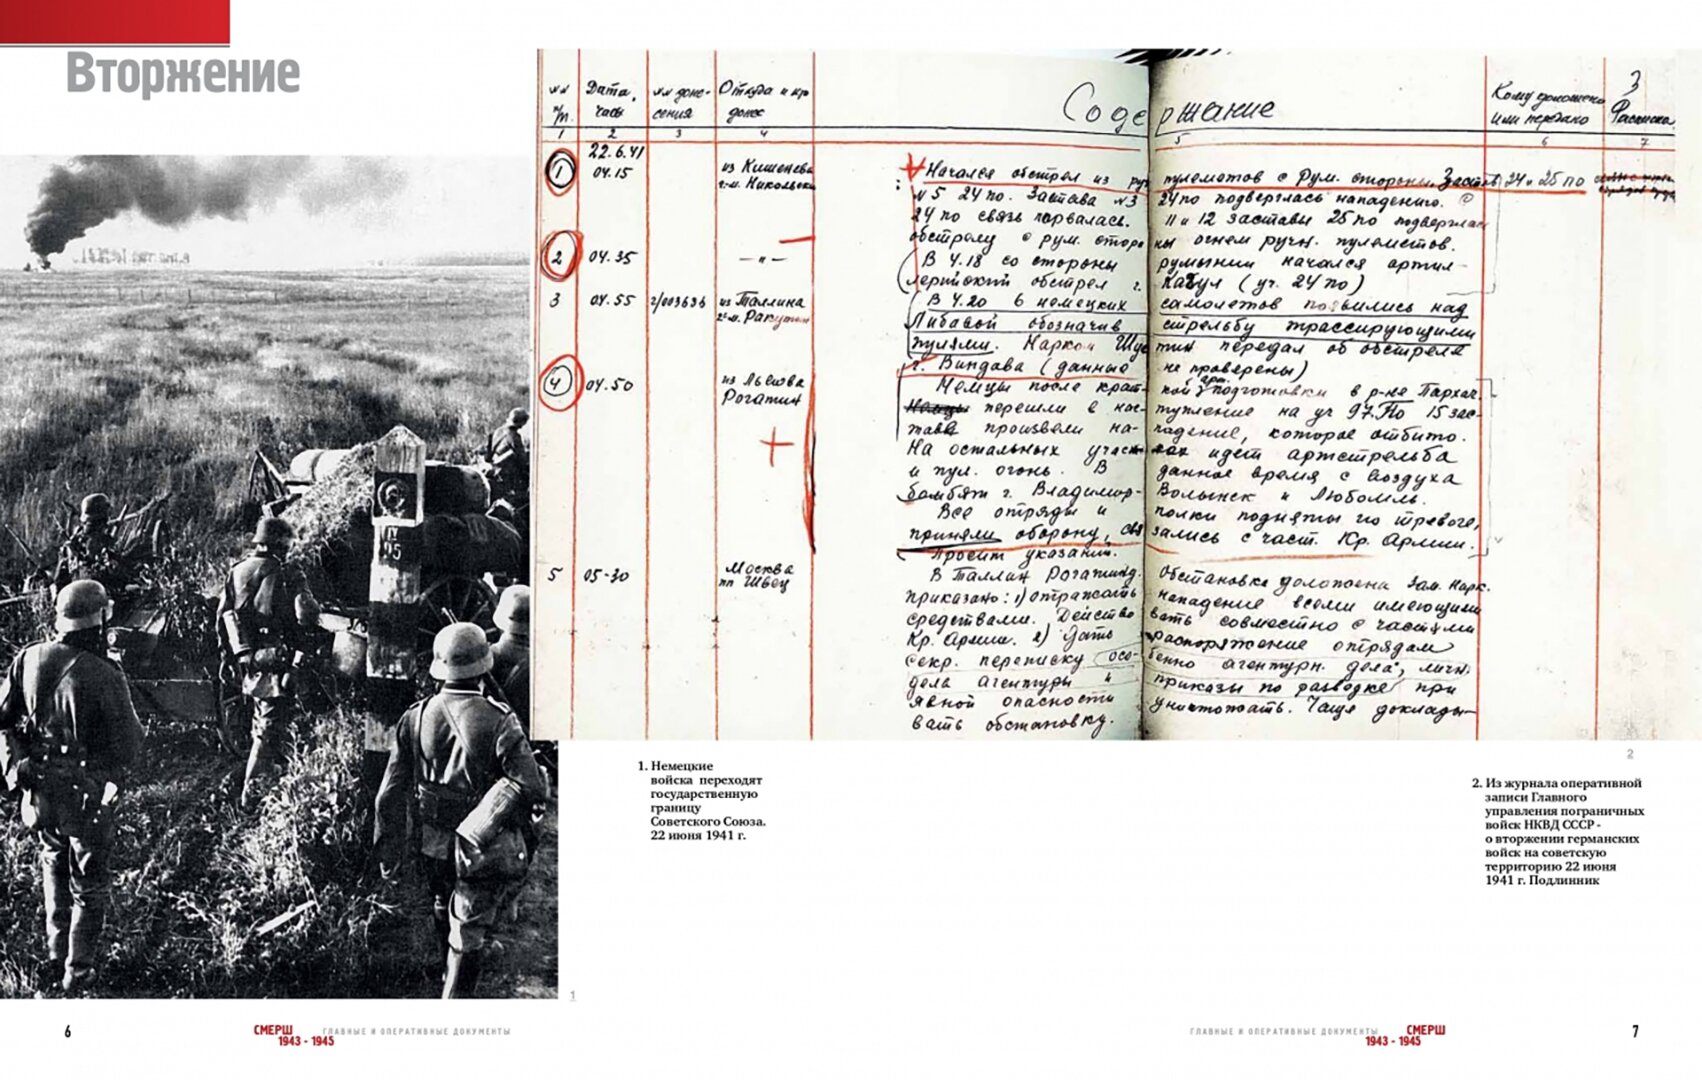 Вторжение
№№ п/п. Дата, часы №№ доне- сения Откуда и кто донес Содержание Кому доложено или передано Расписка
3
1 2 3 4 5 6 7
1 22.6.41 04.15 из Кишенева г.-м. Никольск
Начался обстрел из руч пулеметов с Рум. стороны. Застав 24 и 25 по
№5 24 по. Застава №3 24 по подверглась нападению.
24 по связь порвалась. 11 и 12 заставы 25 по подверглась
обстрелу с рум. сторо ны огнем ручн. пулеметов.
2 04.35 — " —
В 4.18 со стороны румынии начался артил-
лерийский обстрел г. Кагул (уч. 24 по)
3 04.55 г/003636 из Таллина г-м. Ракутин
В 4.20 6 немецких самолетов появились над
Либавой обозначив стрельбу трассирующими
пулями. Нарком Шус тин передал об обстреле
г. Виндава (данные не проверены)
4 04.50 из Львова Рогатин
Немцы после крат- кой арт. подготовки в р-не Пархач
Немцы перешли в нас- тупление на уч 97 По 15 зас-
тава произвели на- падение, которое отбито.
На остальных участ ках идет артстрельба
и пул. огонь. В данное время с воздуха
бомбят г. Владимир- Волынск и Любомль.
Все отряды и полки подняты по тревоге,
приняли оборону, свя зались с част. Кр. Армии.
Просит указаний.
5 05-30 Москва пп Швец
В Таллин Рогатину. Обстановка доложена Зам. Нарк.
приказано: 1) отражать нападение всеми имеющими
средствами. Действо вать совместно с частями
Кр. Армии. 2) Дать распоряжение отрядам
секр. переписку (осо- бенно агентурн. дела, личн.
дела агентуры и приказы по разведке при
явной опасности уничтожать. Чаще доклады-
вать обстановку.
1. Немецкие
войска переходят
государственную
границу
Советского Союза.
22 июня 1941 г.
2
2. Из журнала оперативной
записи Главного
управления пограничных
войск НКВД СССР -
о вторжении германских
войск на советскую
территорию 22 июня
1941 г. Подлинник
1
6 СМЕРШ ГЛАВНЫЕ И ОПЕРАТИВНЫЕ ДОКУМЕНТЫ
1943 - 1945
ГЛАВНЫЕ И ОПЕРАТИВНЫЕ ДОКУМЕНТЫ СМЕРШ 7
1943 - 1945